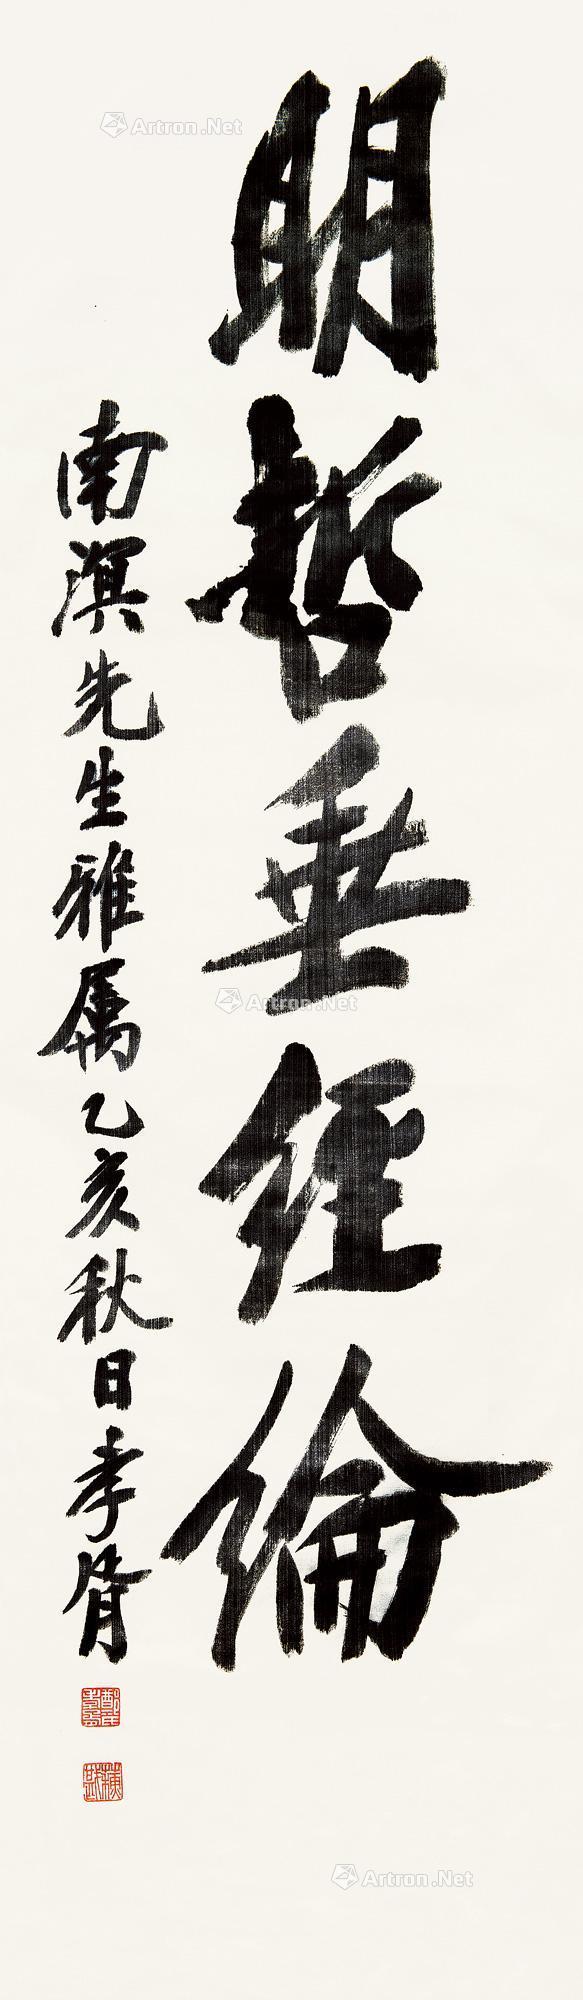 明哲垂經綸
南溟先生雅属乙亥秋日孝胥
Artron.Net
Artron.Net
Artron.Net